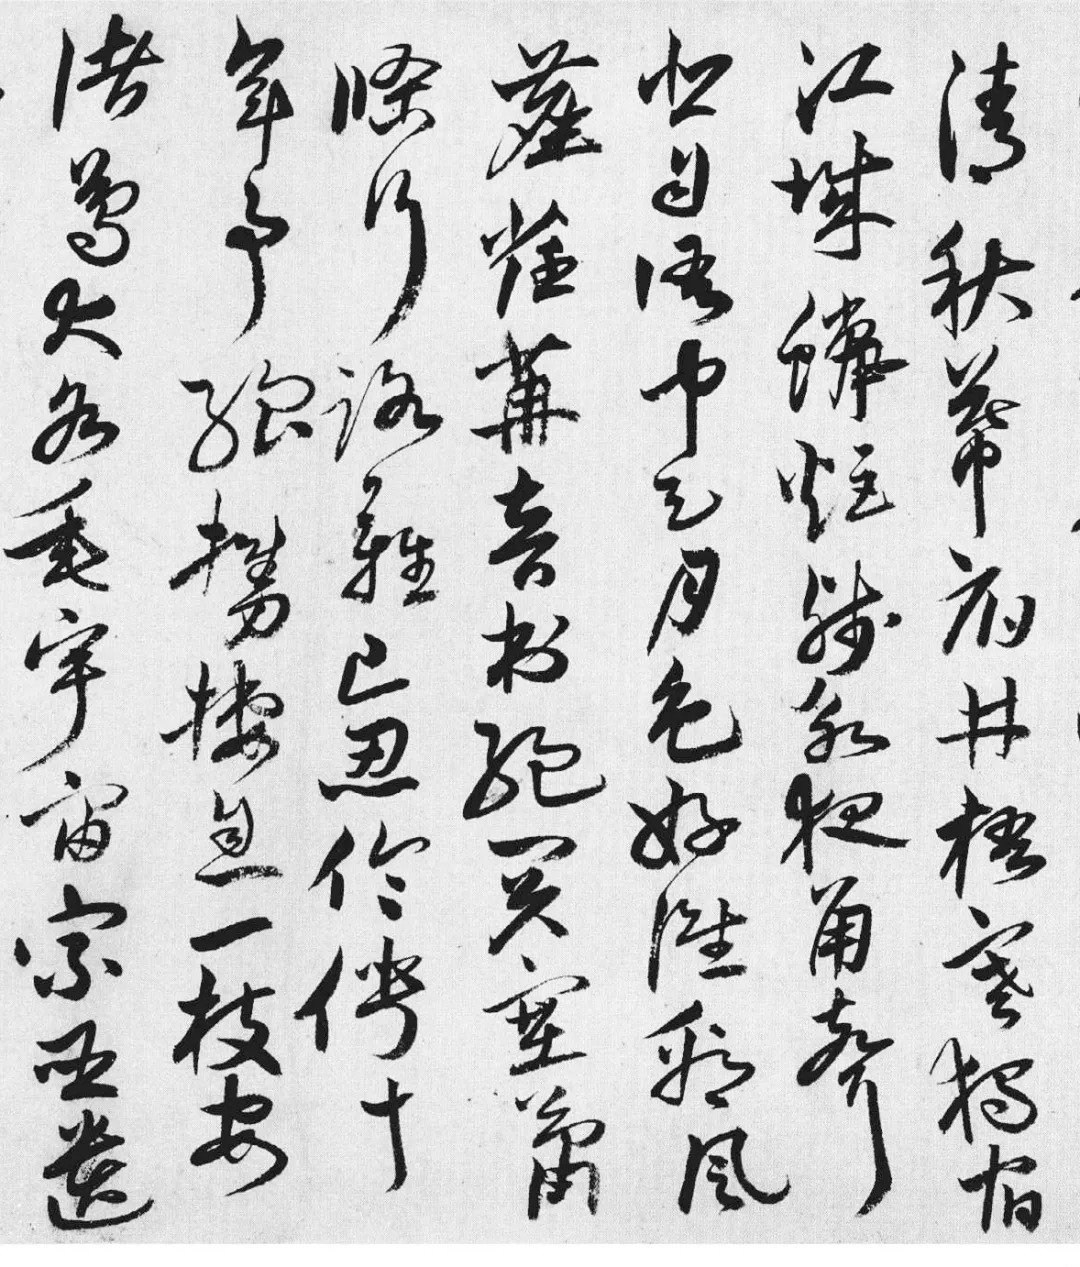 清秋幕府井梧寒獨宿
江城蠟炬殘永夜角聲
悲自語中天月色好誰看風
塵荏苒音書絕關塞蕭
條行路難已忍伶俜十
年事強棲息一枝安
諸葛大名垂宇宙宗臣遺